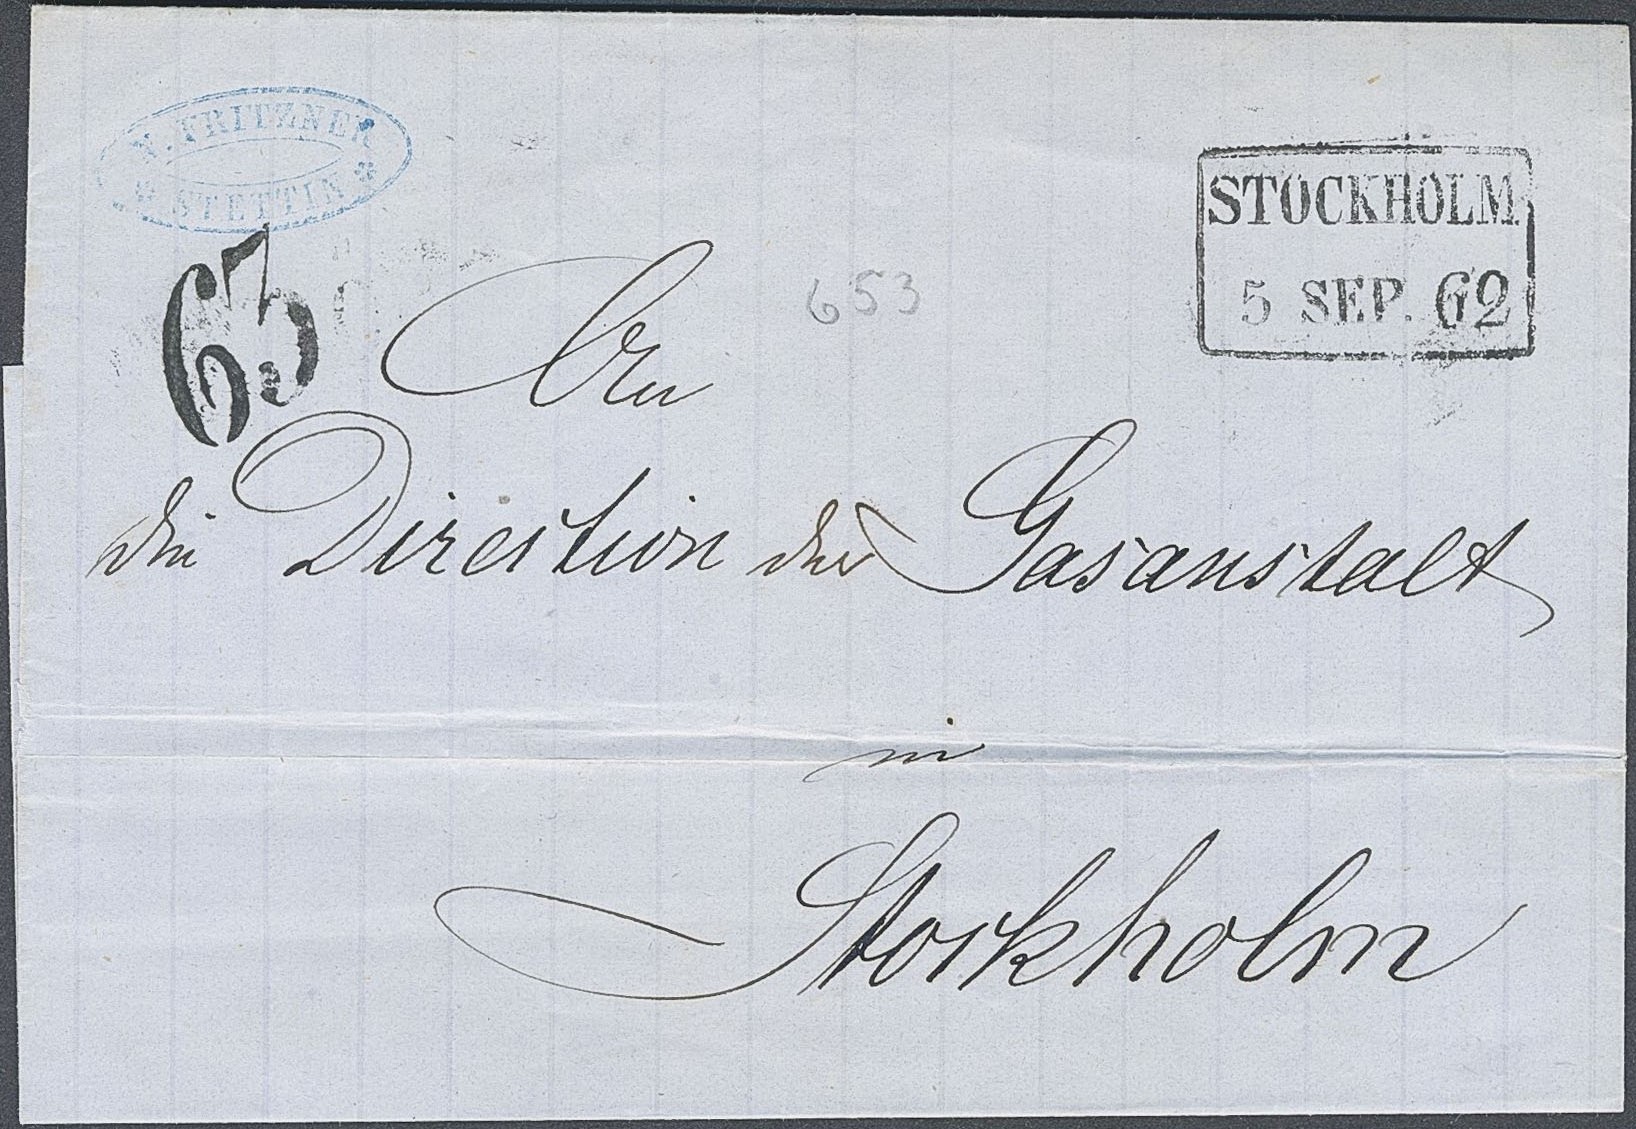 W. FRITZNER
* STETTIN *
STOCKHOLM
5 SEP. 62
63
653
An
die Direction der Gasanstalt
in
Stockholm